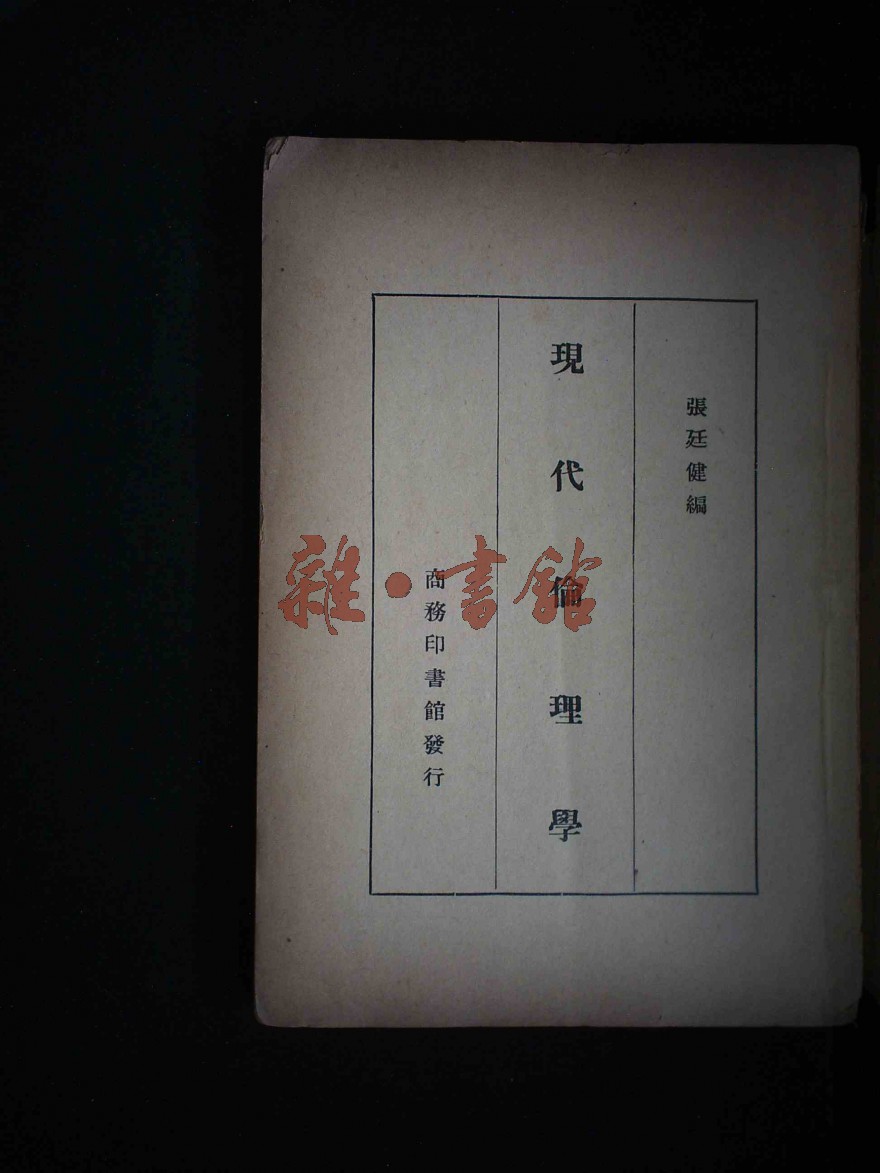 張廷健編
現代倫理學
商務印書館發行
雜·書館